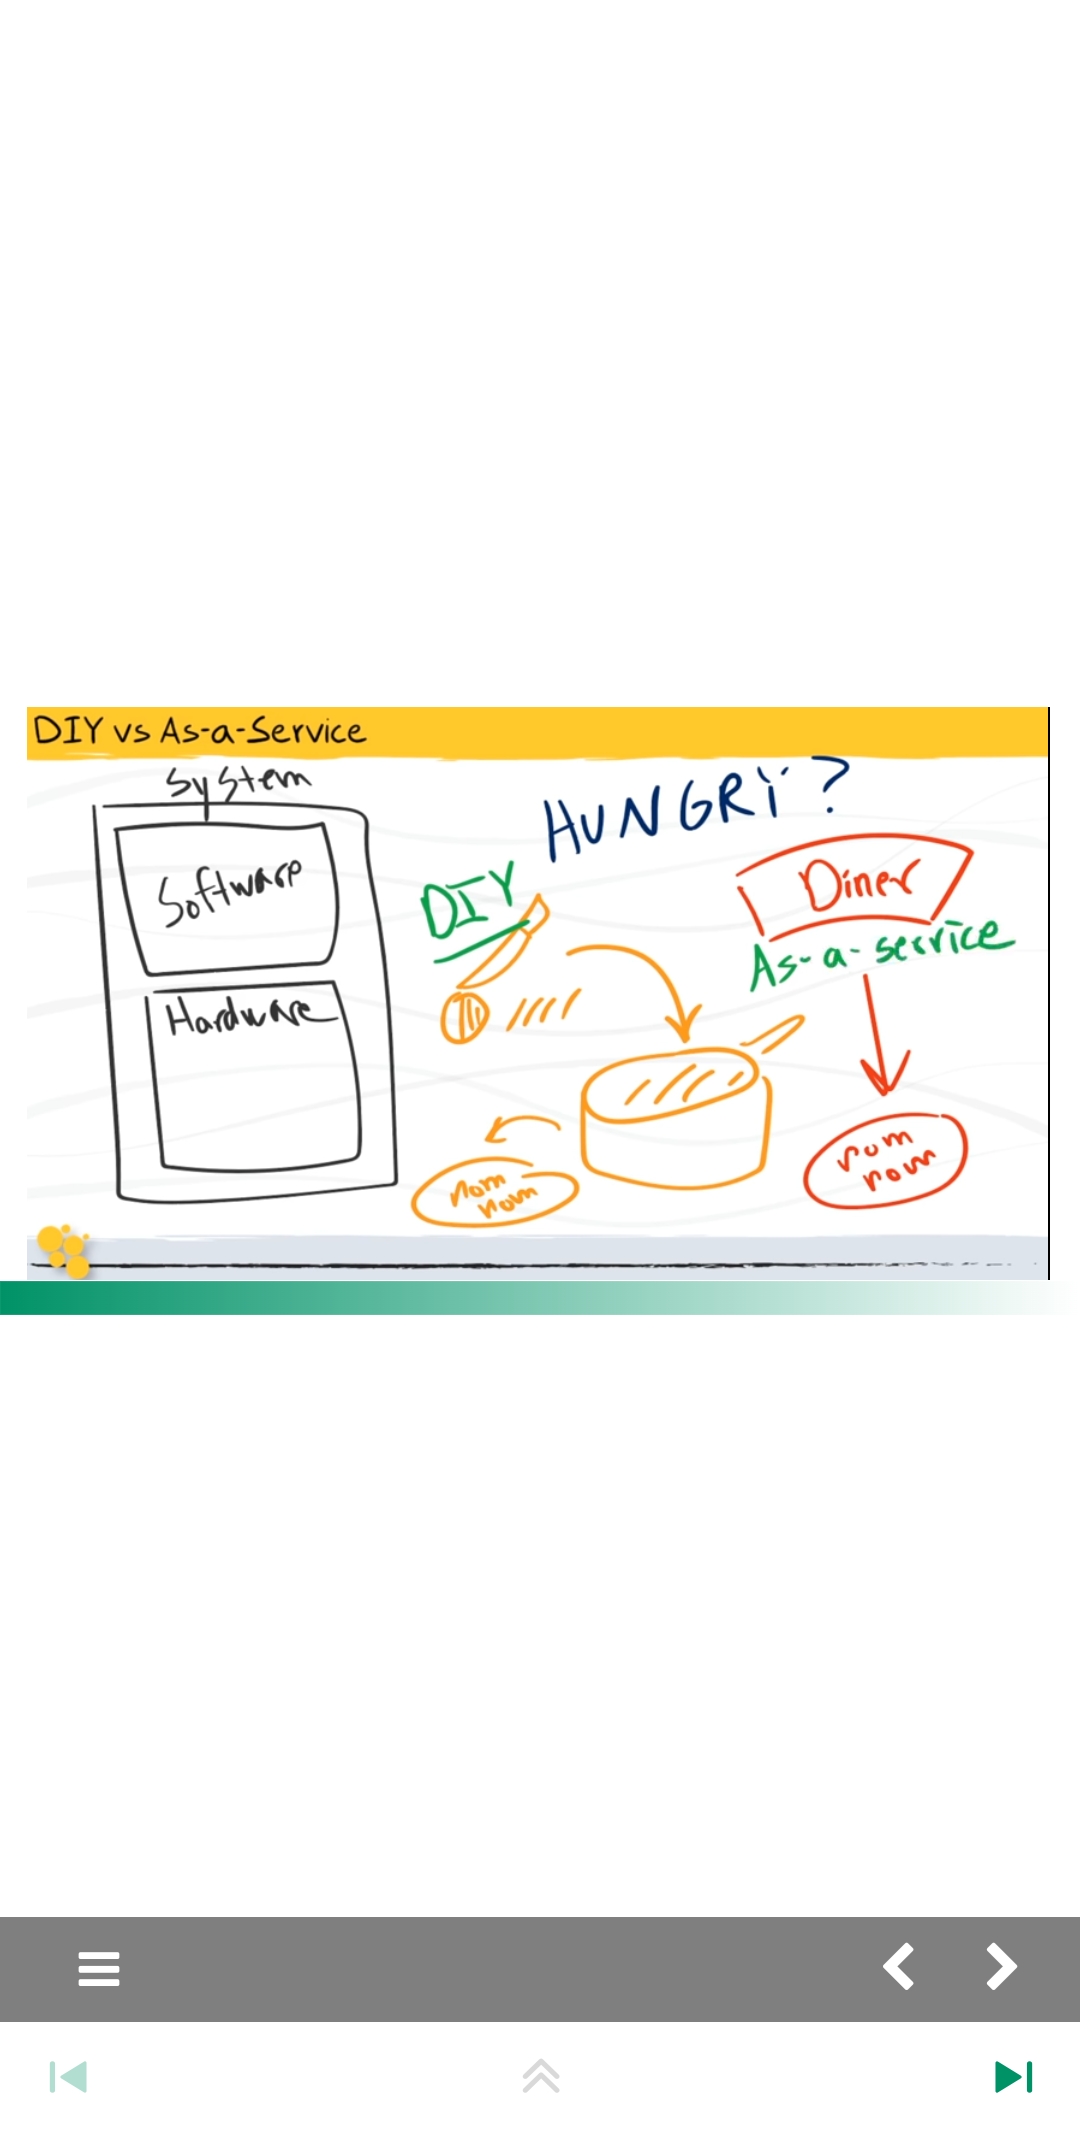 DIY vs As-a-Service
System
Software
Hardware
HUNGRY?
DIY
Diner
As-a-service
nom
nom
nom
nom